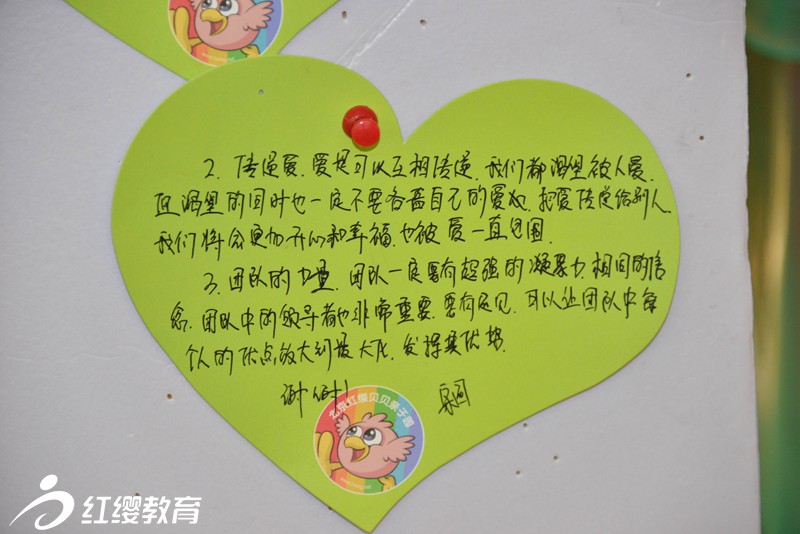 2. 传递爱. 爱是可以互相传递. 我们都渴望被人爱.
但渴望的同时也一定不要吝啬自己的爱心. 把爱传递给别人.
我们将会更加开心和幸福. 也被爱一直包围.
3. 团队的力量. 团队一定要有超强的凝聚力. 相同的信
念. 团队中的领导者也非常重要. 要有远见. 可以让团队中每
个人的优点放大到最大化. 发挥其优势.
谢谢!
北京红缨贝贝亲子园
红缨教育